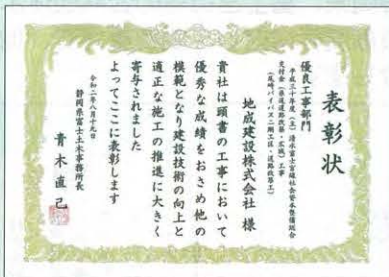 表彰状
優良工事部門
平成三十年度(主)清水富士宮線社会資本整備総合
交付金(県道道路改築・広域)工事
(尾崎バイパス二期工区、道路改築工)
地成建設株式会社 様
貴社は頭書の工事において
優秀な成績をおさめ他の
模範となり建設技術の向上と
適正な施工の推進に大きく
寄与されました
よってここに表彰します
令和二年八月十九日
静岡県富士土木事務所長
青木直己